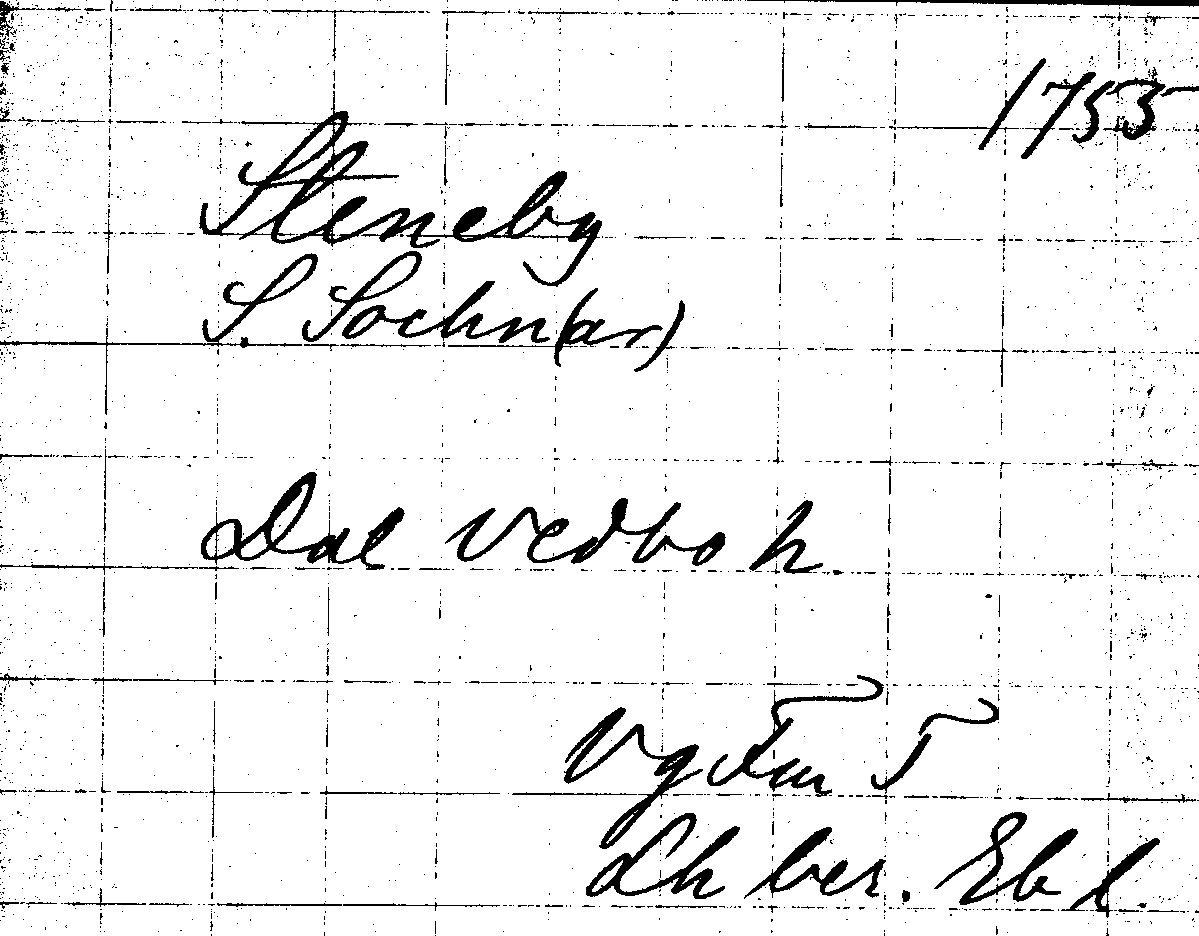 1755
Steneby
S. Sochn(ar)
Dal Vedbo h.
Vg Fm T
Lh ber. Ebl.